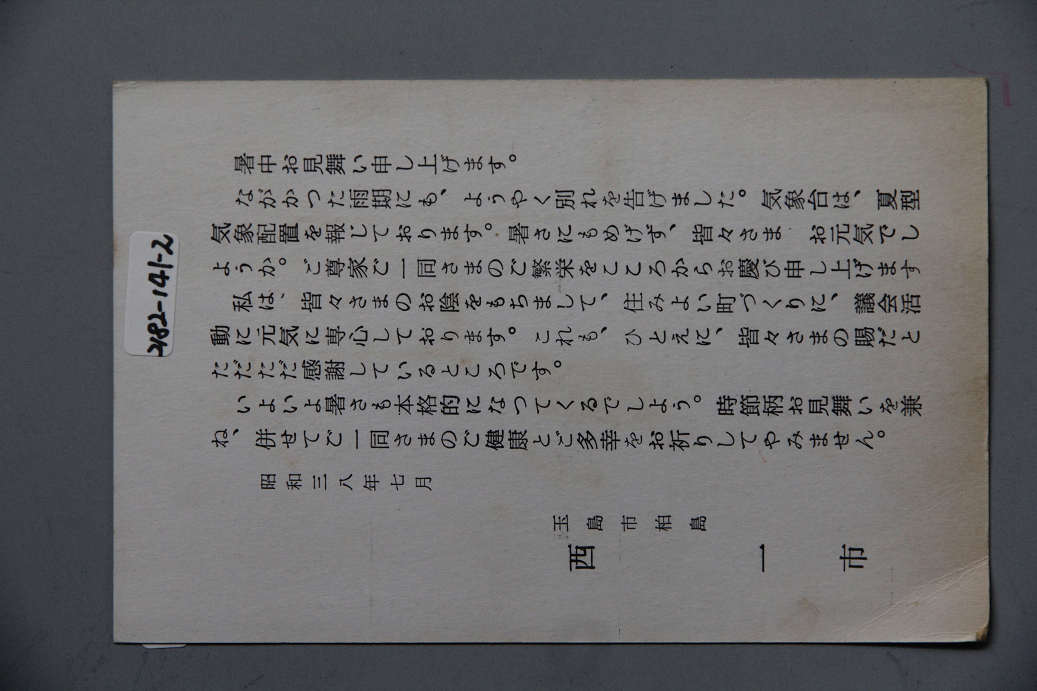 暑中お見舞い申し上げます。
ながかつた雨期にも、ようやく別れを告げました。気象台は、夏型
気象配置を報じております。暑さにもめげず、皆々さま お元気でし
ようか。ご尊家ご一同さまのご繁栄をこころからお慶び申し上げます
私は、皆々さまのお陰をもちまして、住みよい町づくりに、議会活
動に元気に専心しております。これも、ひとえに、皆々さまの賜だと
ただただ感謝しているところです。
いよいよ暑さも本格的になつてくるでしよう。時節柄お見舞いを兼
ね、併せてご一同さまのご健康とご多幸をお祈りしてやみません。
昭和三八年七月
玉島市柏島
西一市
2182-141-2